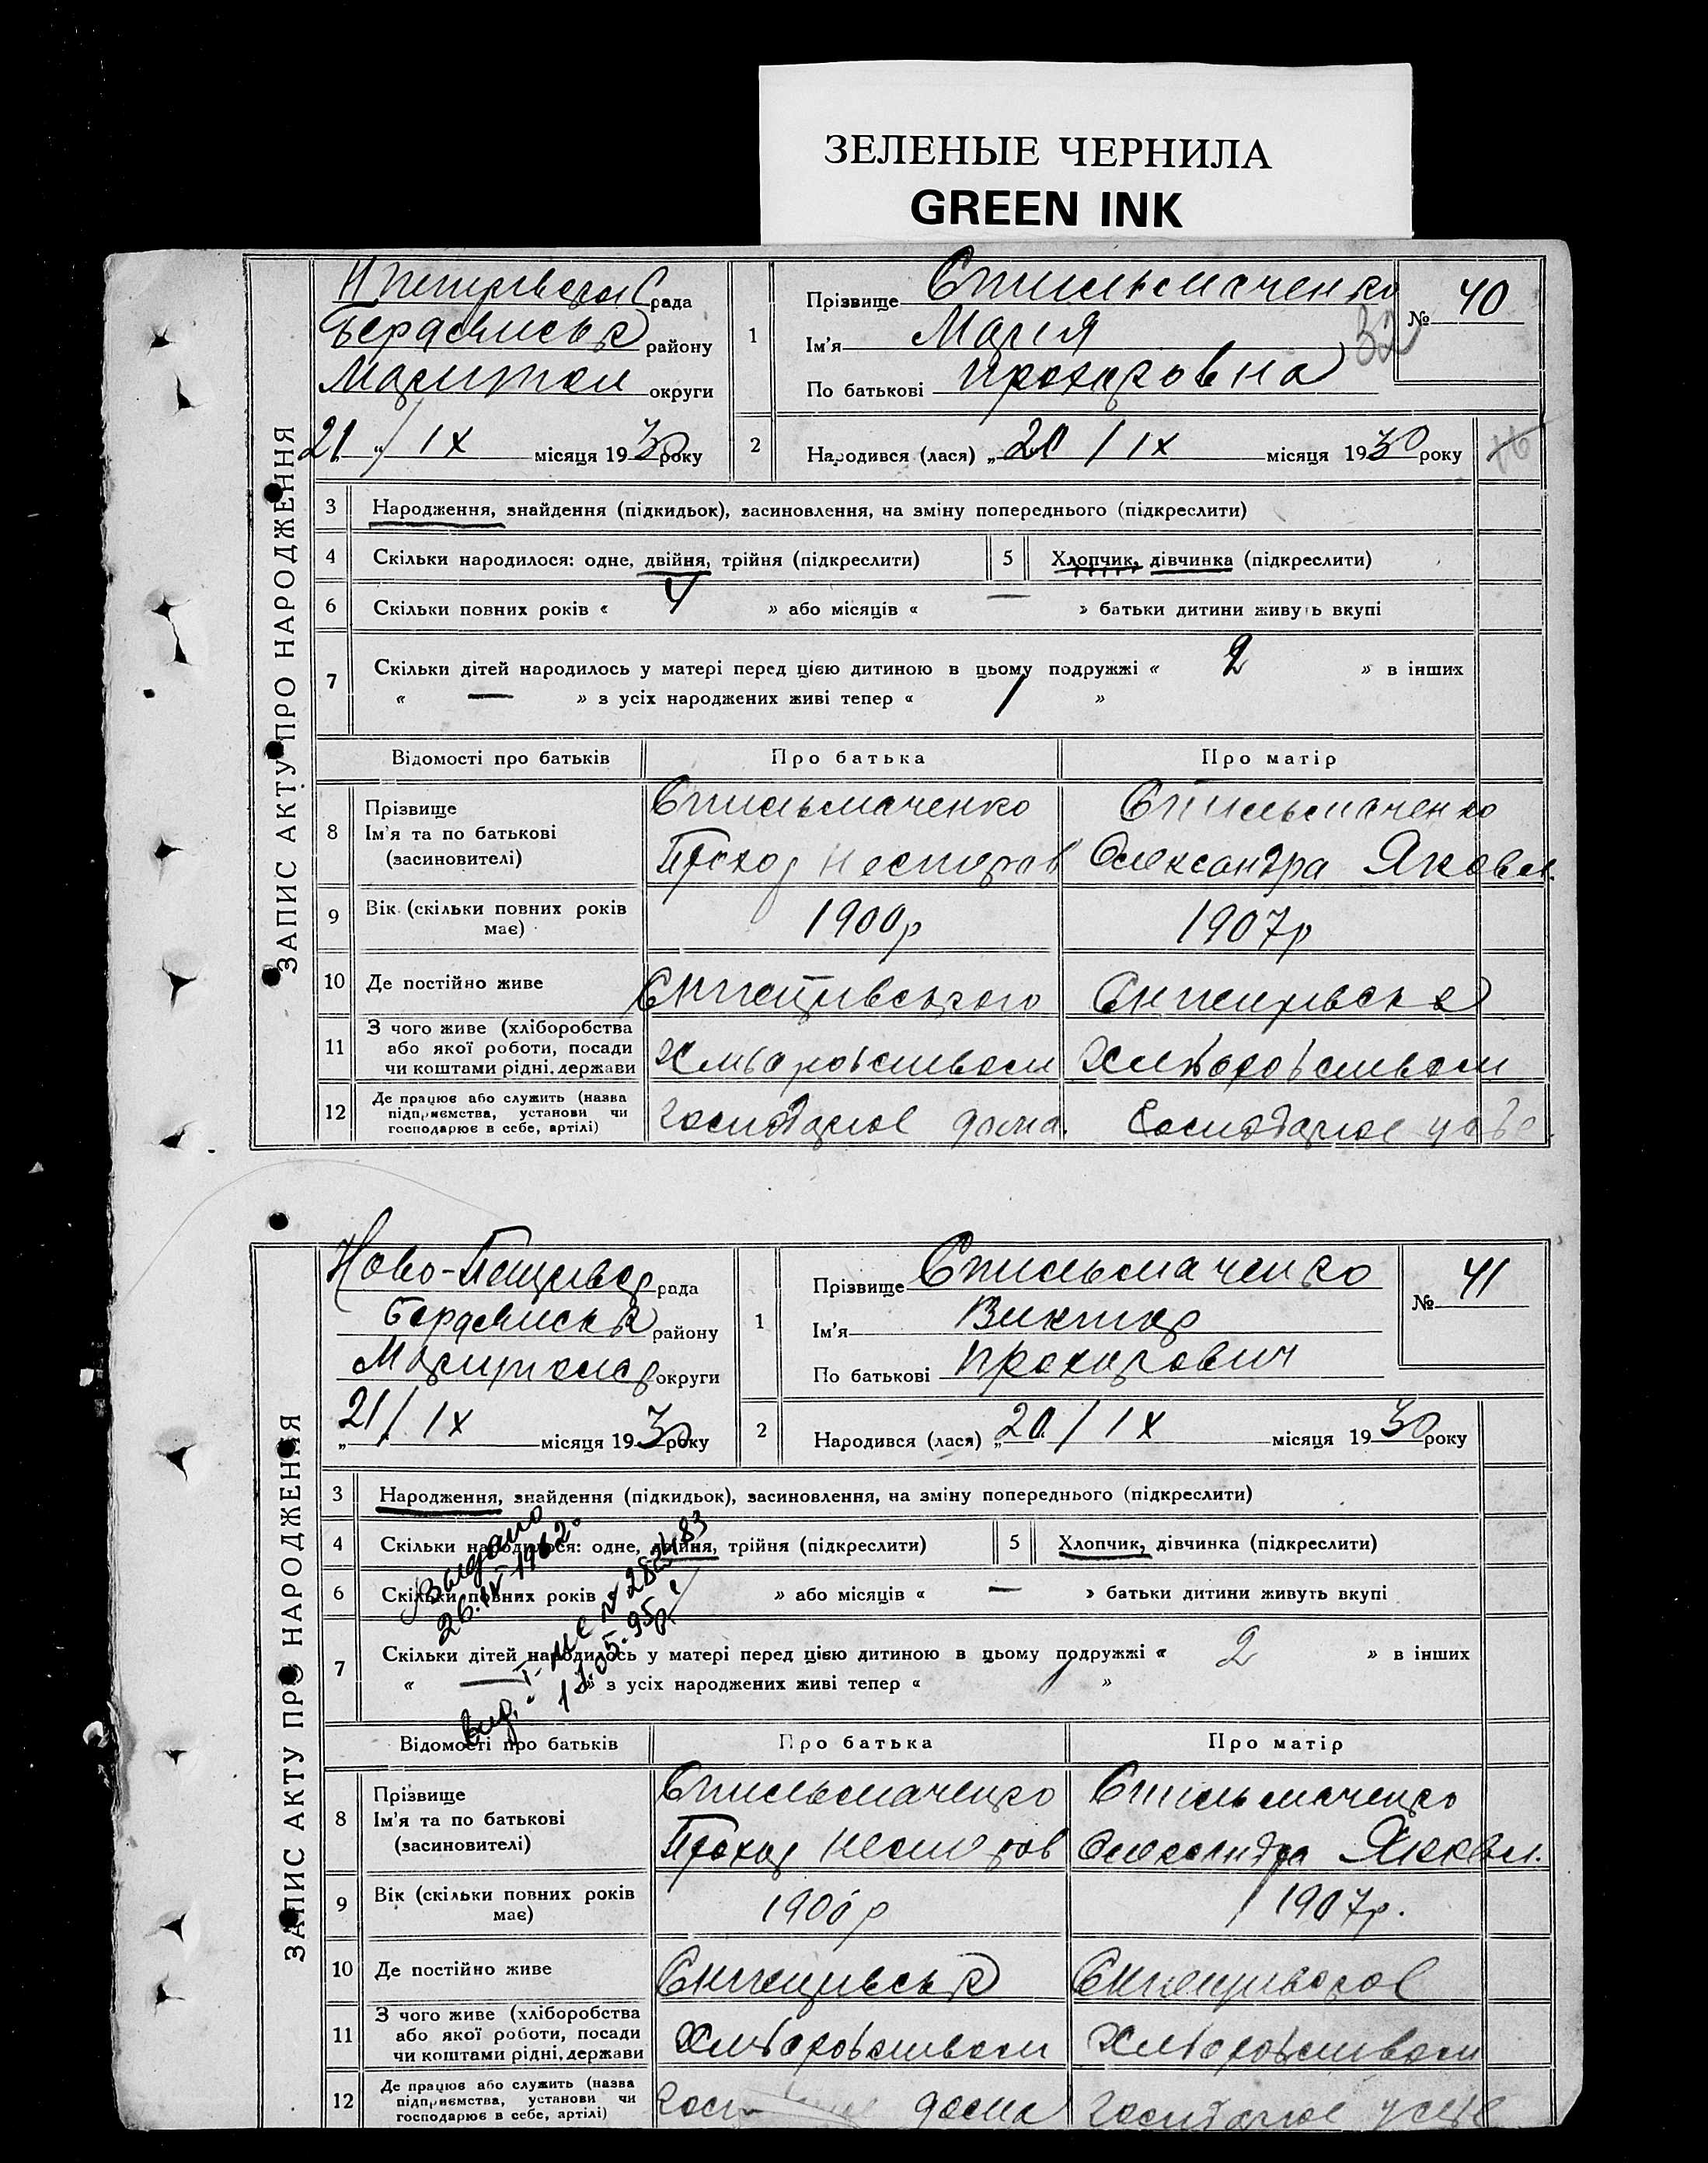 ЗЕЛЕНЫЕ ЧЕРНИЛА
GREEN INK
ЗАПИС АКТУ ПРО НАРОДЖЕННЯ
рада
району
округи
21 / IX місяця 1930 року
1
Прізвище Стильмаченко
Ім'я Марія
По батькові Прохоровна
№ 40
32
2
Народився (лася) „ 20 / IX місяця 1930 року
16
3 Народження, знайдення (підкидьок), засиновлення, на зміну попереднього (підкреслити)
4 Скільки народилося: одне, двійня, трійня (підкреслити) 5 Хлопчик, дівчинка (підкреслити)
6 Скільки повних років « 4 » або місяців « — » батьки дитини живуть вкупі
7 Скільки дітей народилось у матері перед цією дитиною в цьому подружжі « 2 » в інших
« — » з усіх народжених живі тепер « 1 »
Відомості про батьків Про батька Про матір
8 Прізвище
Ім'я та по батькові
(засиновителі)
Стильмаченко
Прохор Нестеров
Стильмаченко
Олександра Яковл.
9 Вік (скільки повних років
має)
1900р
1907р
10 Де постійно живе
11 З чого живе (хліборобства
або якої роботи, посади
чи коштами рідні, держави
Хліборобством
Хліборобством
12 Де працює або служить (назва
підприємства, установи чи
господарює в себе, артілі)
Господарює дома.
Господарює
ЗАПИС АКТУ ПРО НАРОДЖЕННЯ
рада
району
округи
„ 21 / IX місяця 1930 року
1
Прізвище Стильмаченко
Ім'я Виктор
По батькові Прохорович
№ 41
2
Народився (лася) „ 20 / IX місяця 1930 року
3 Народження, знайдення (підкидьок), засиновлення, на зміну попереднього (підкреслити)
4 Скільки народилося: одне, двійня, трійня (підкреслити) 5 Хлопчик, дівчинка (підкреслити)
6 Скільки повних років « » або місяців « — » батьки дитини живуть вкупі
7 Скільки дітей народилось у матері перед цією дитиною в цьому подружжі « 2 » в інших
« — » з усіх народжених живі тепер « 1 »
Выдано
26.IV 1962
Відомості про батьків Про батька Про матір
8 Прізвище
Ім'я та по батькові
(засиновителі)
Стильмаченко
Прохор Нестеров
Стильмаченко
Олександра Яковл.
9 Вік (скільки повних років
має)
1900р
1907р.
10 Де постійно живе
11 З чого живе (хліборобства
або якої роботи, посади
чи коштами рідні, держави
Хліборобством
Хліборобством
12 Де працює або служить (назва
підприємства, установи чи
господарює в себе, артілі)
дома
Господарює